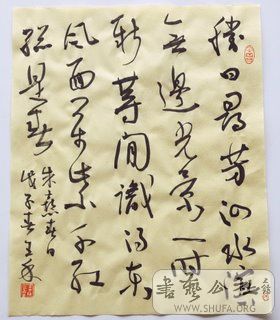 勝日尋芳泗水濱
無邊光景一時
新等閒識得東
風面萬紫千紅
總是春
朱熹春日
戊子春王
書藝公社
WWW.SHUFA.ORG